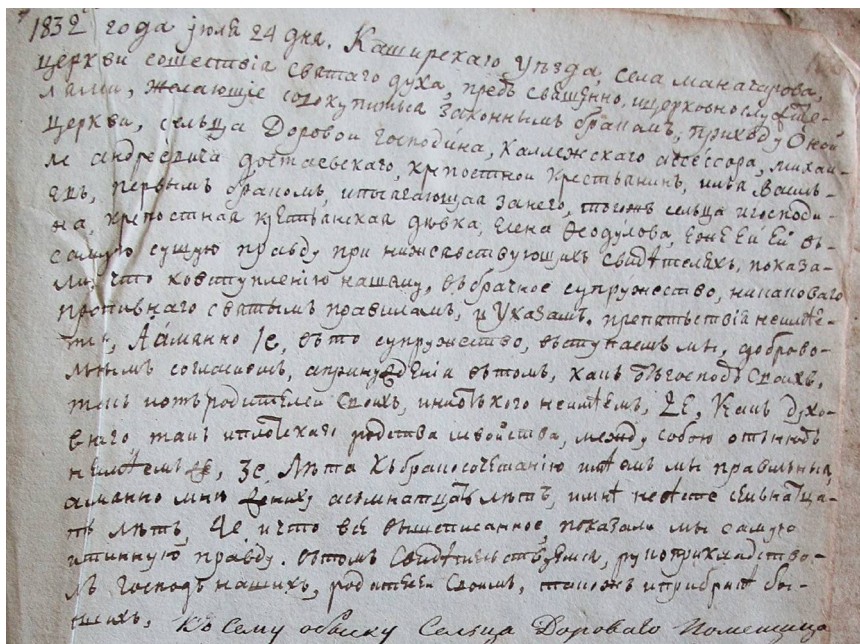 1832 года июля 24 дня. Каширскаго уѣзда, села маначарова,
церкви сошествія святаго духа, предъ священно, ицерковнослуже-
лями, желающіе совокупится законнымъ бракамъ, приходу оной
церкви, сельца Доровои господина, каллежскаго ассессора, михаи-
ла андреевича достаевскаго, крѣпостнои крестьянинъ, илья василь-
евъ, первымъ бракомъ, ипасагающая занего, тогожъ сельца игосподи-
на, крѣпостная крстьянская дѣвка, елена Ѳодулова, еже ей ей въ
самую сущую правду при нижеавствующихъ свидѣтеляхъ, показа-
ли, что ковступленію нашему, въбрачное супружество, никаковаго
противнаго святымъ правиламъ, и указамъ. препятьствій неимѣе-
мъ, Аѧманно 1е, въто супружество, въступаемъ мы, доброво-
льнымъ согласиемъ, апринужденія вътомъ, какъ отъгосподъ своихъ,
такъ иотъродителей своихъ, иниотъкого неимѣемъ, 2е, какъ духо-
внаго такъ иплотскаго родства исвойства, между собою отънюдъ
неимѣемъже, 3е лѣта къбракосочетанию имѣемъ мы правильныя,
аманно мнѣ жениху асьмнатцать лѣтъ, имнѣ невѣсте семьнатца-
ть лѣтъ, 4е ичто всё вышеписанное, показали мы самую
итинную правду. вътомъ свидѣтельствуемся, рукоприкладство-
мъ господъ нашихъ, родителей своимъ, такожъ iприбрат бы-
тныхъ, Къ сему обыску сельца Дороваво Помещица